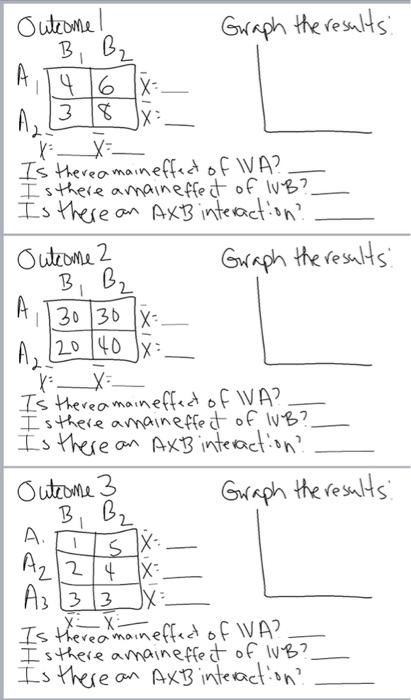 Outcome 1 Graph the results:
B1 B2
A1 4 6 X̄=__
A2 3 8 X̄=__
X̄=__ X̄=__
Is there a main effect of IVA? __
Is there a main effect of IVB? __
Is there an AXB interaction? __
Outcome 2 Graph the results:
B1 B2
A1 30 30 X̄=__
A2 20 40 X̄=__
X̄=__ X̄=__
Is there a main effect of IVA? __
Is there a main effect of IVB? __
Is there an AXB interaction? __
Outcome 3 Graph the results:
B1 B2
A1 1 5 X̄=__
A2 2 4 X̄=__
A3 3 3 X̄=__
X̄=__ X̄=__
Is there a main effect of IVA? __
Is there a main effect of IVB? __
Is there an AXB interaction? __